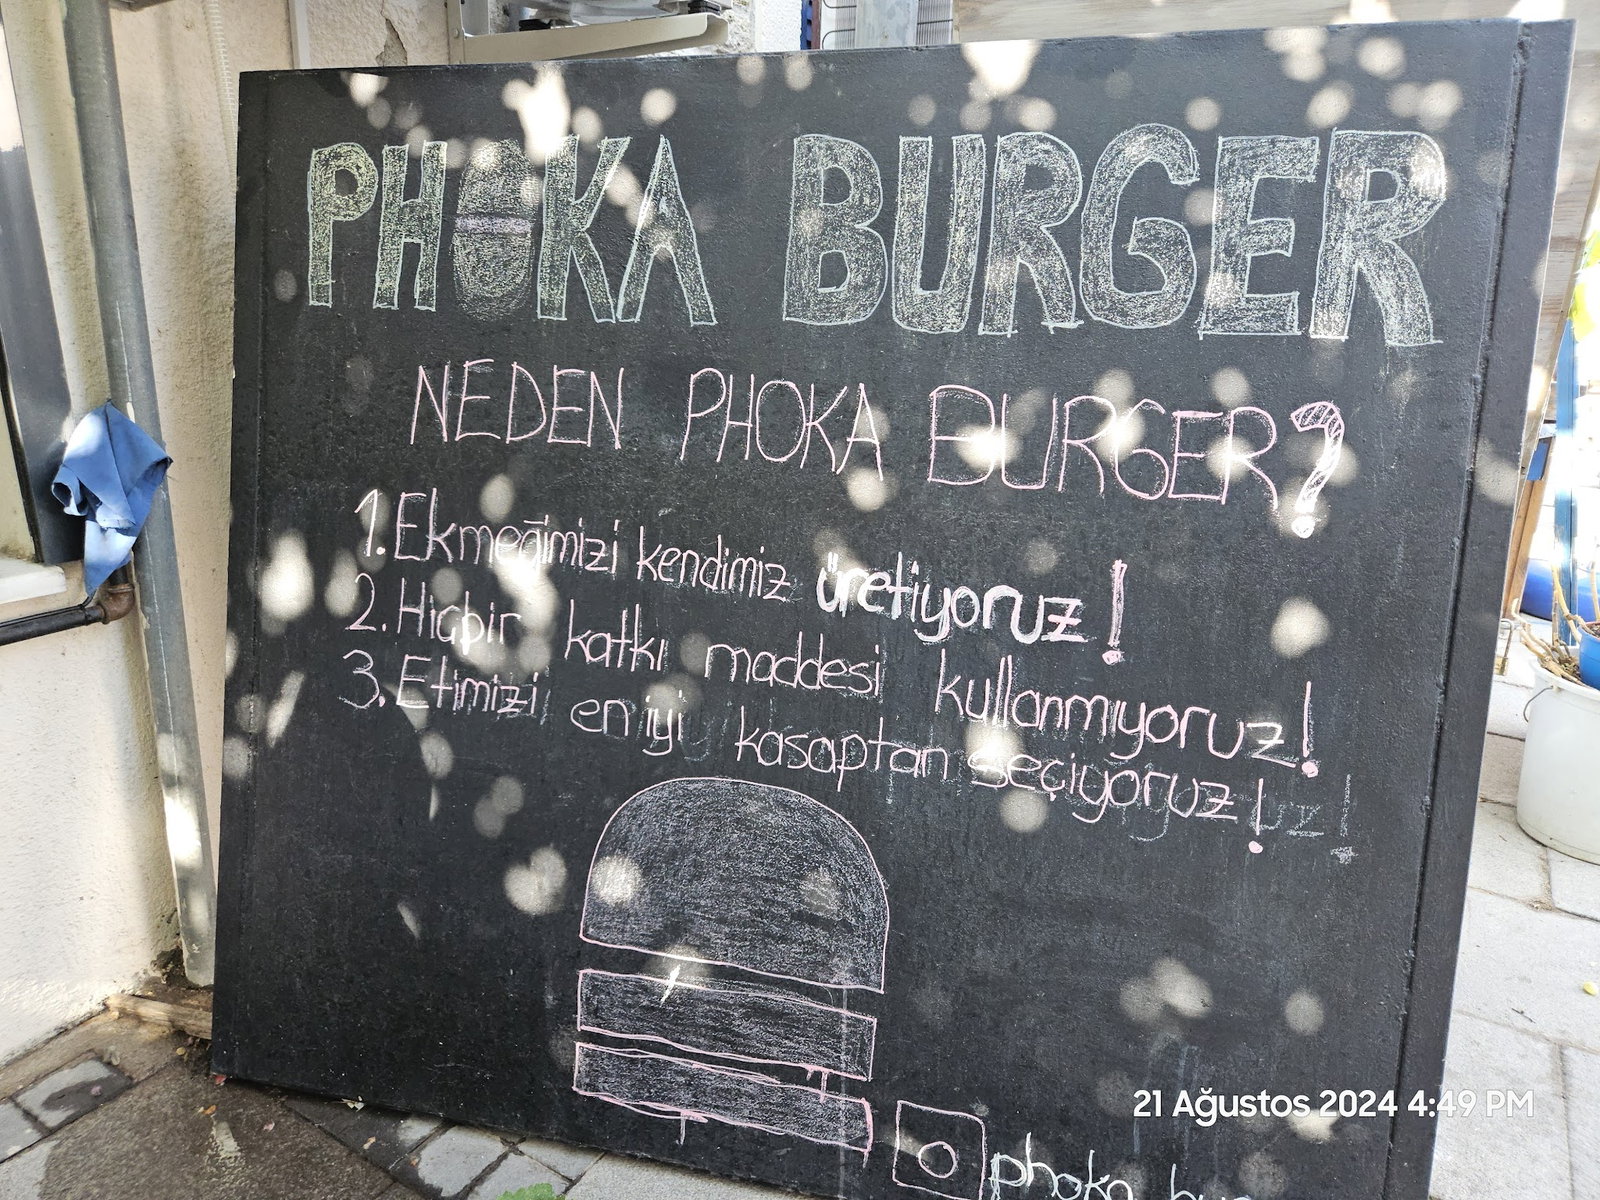 PHOKA BURGER
NEDEN PHOKA BURGER?
1. Ekmeğimizi kendimiz üretiyoruz!
2. Hiçbir katkı maddesi kullanmıyoruz!
3. Etimizi en iyi kasaptan seçiyoruz!
uz!
21 Ağustos 2024 4:49 PM
phoka